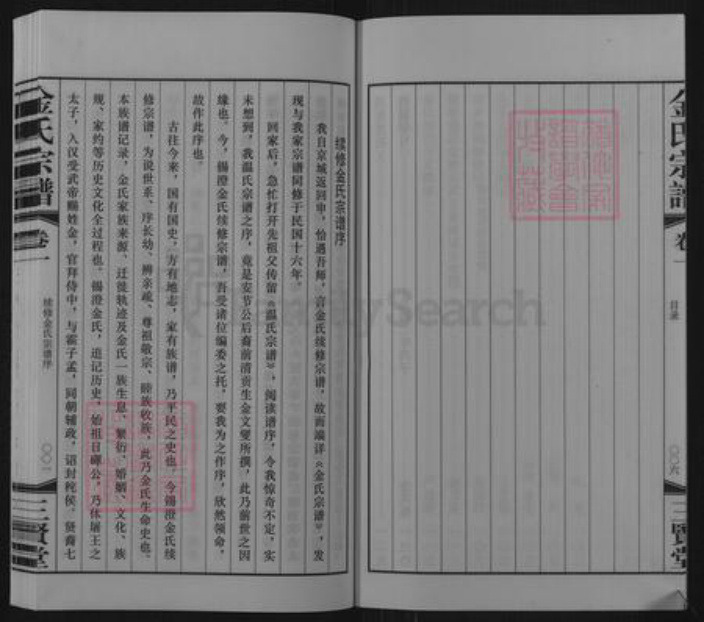 金氏宗谱
卷一
目录
〇〇六
三贤堂
续修金氏宗谱序
我自京城返回中，恰遇吾师，言金氏续修宗谱，故而端详《金氏宗谱》，发
现与我家宗谱同修于民国十六年。
回家后，急忙打开先祖父传留《温氏宗谱》，阅读谱序，令我惊奇不定，实
未想到，我温氏宗谱之序，竟是安节公后裔前清贡生金文燮所撰，此乃前世之因
缘也。今，锡澄金氏续修宗谱，吾受诸位编委之托，要我为之作序，欣然领命，
故作此序也。
古往今来，国有国史，方有地志，家有族谱，乃平民之史也。今锡澄金氏续
修宗谱，为说世系、序长幼、辨亲疏、尊祖敬宗、睦族收族，此乃金氏生命史也、
本族谱记录，金氏家族来源、迁徙轨迹及金氏一族生息、繁衍、婚姻、文化、族
规、家约等历史文化全过程也。锡澄金氏，追记历史，始祖日磾公，乃休屠王之
太子，入汉受武帝赐姓金，官拜侍中，与霍子孟，同朝辅政，诏封秺侯，贤裔七
金氏宗谱
卷一
续修金氏宗谱序
〇〇一
三贤堂
FamilySearch